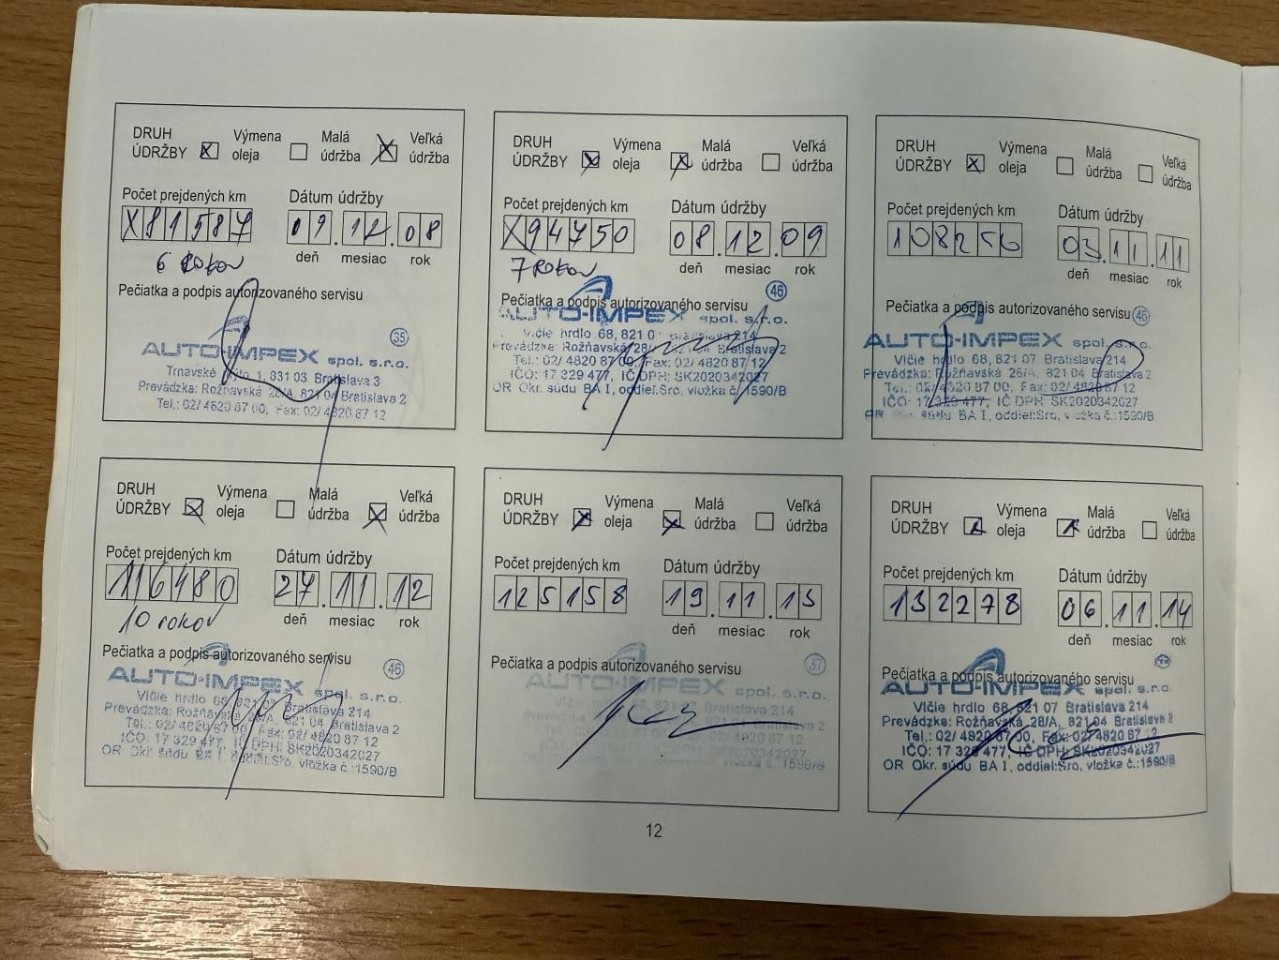 DRUH ÚDRŽBY X Výmena oleja Malá údržba X Veľká údržba
Počet prejdených km Dátum údržby
X81587 09.12.08
deň mesiac rok
6 rokov
Pečiatka a podpis autorizovaného servisu
35
AUTO-IMPEX spol. s.r.o.
Trnavské 1, 831 03 Bratislava 3
Prevádzka: Rožňavská 28/A, 821 04 Bratislava 2
Tel.: 02/ 4820 87 00, Fax: 02/ 4820 87 12
DRUH ÚDRŽBY X Výmena oleja X Malá údržba Veľká údržba
Počet prejdených km Dátum údržby
X94750 08.12.09
deň mesiac rok
7 rokov
Pečiatka a podpis autorizovaného servisu
46
AUTO-IMPEX spol. s.r.o.
Vlčie hrdlo 68, 821 07 Bratislava 214
Prevádzka: Rožňavská 28/A, 821 04 Bratislava 2
Tel.: 02/ 4820 87 00, Fax: 02/ 4820 87 12
IČO: 17 329 477, IČ DPH: SK2020342027
OR Okr. súdu BA I, oddiel:Sro, vložka č.:1590/B
DRUH ÚDRŽBY X Výmena oleja Malá údržba Veľká údržba
Počet prejdených km Dátum údržby
108256 03.11.11
deň mesiac rok
Pečiatka a podpis autorizovaného servisu
46
AUTO-IMPEX spol. s.r.o.
Vlčie hrdlo 68, 821 07 Bratislava 214
Prevádzka: Rožňavská 28/A, 821 04 Bratislava 2
Tel.: 02/ 4820 87 00, Fax: 02/ 4820 87 12
IČO: 17 329 477, IČ DPH: SK2020342027
súdu BA I, oddiel:Sro, vložka č.:1590/B
DRUH ÚDRŽBY X Výmena oleja Malá údržba X Veľká údržba
Počet prejdených km Dátum údržby
116480 27.11.12
deň mesiac rok
10 rokov
Pečiatka a podpis autorizovaného servisu
46
AUTO-IMPEX spol. s.r.o.
Vlčie hrdlo 68, 821 07 Bratislava 214
Prevádzka: Rožňavská 28/A, 821 04 Bratislava 2
Tel.: 02/ 4820 87 00, Fax: 02/ 4820 87 12
IČO: 17 329 477, IČ DPH: SK2020342027
OR Okr. súdu BA I, oddiel:Sro, vložka č.:1590/B
DRUH ÚDRŽBY X Výmena oleja X Malá údržba Veľká údržba
Počet prejdených km Dátum údržby
125158 19.11.13
deň mesiac rok
Pečiatka a podpis autorizovaného servisu
37
AUTO-IMPEX spol. s.r.o.
Bratislava 214
Bratislava 2
02/ 4820 87 12
SK2020342027
vložka č.:1590/B
DRUH ÚDRŽBY X Výmena oleja X Malá údržba Veľká údržba
Počet prejdených km Dátum údržby
132278 06.11.14
deň mesiac rok
Pečiatka a podpis autorizovaného servisu
AUTO-IMPEX spol. s.r.o.
Vlčie hrdlo 68, 821 07 Bratislava 214
Prevádzka: Rožňavská 28/A, 821 04 Bratislava 2
Tel.: 02/ 4820 87 00, Fax: 02/ 4820 87 12
IČO: 17 329 477, IČ DPH: SK2020342027
OR Okr. súdu BA I, oddiel:Sro, vložka č.:1590/B
12